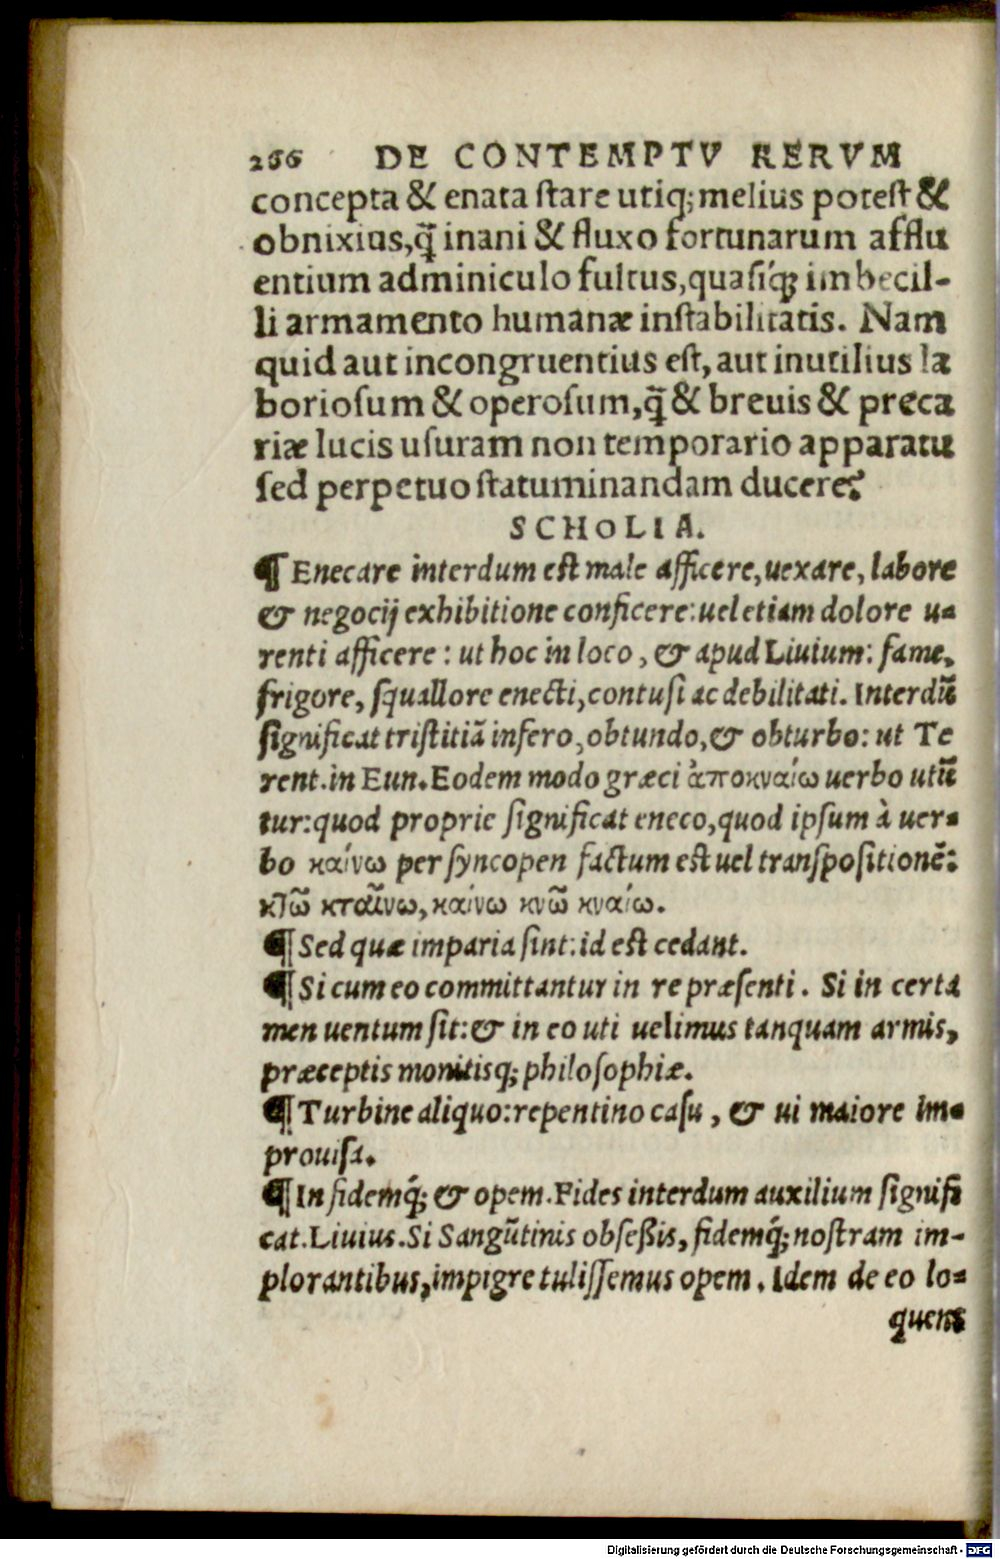 266 DE CONTEMPTV RERVM
concepta & enata ſtare utiq; melius poteſt &
obnixius, q̃ inani & fluxo fortunarum afflu
entium adminiculo fultus, quaſiq́; imbecil-
li armamento humanæ inſtabilitatis. Nam
quid aut incongruentius eſt, aut inutilius la
borioſum & operoſum, q̃ & breuis & preca
riæ lucis uſuram non temporario apparatu
ſed perpetuo ſtatuminandam ducere?
SCHOLIA.
¶ Enecare interdum eſt male afficere, uexare, labore
& negocij exhibitione conficere: uel etiam dolore u-
renti afficere: ut hoc in loco, & apud Liuium: fame,
frigore, ſquallore enecti, contuſi ac debilitati. Interdũ
ſignificat triſtitiã infero, obtundo, & obturbo: ut Te
rent. in Eun. Eodem modo græci ἀποκναίω uerbo utũ
tur: quod proprie ſignificat eneco, quod ipſum à uer-
bo καίνω per ſyncopen factum eſt uel tranſpoſitionẽ:
κτῶ κταίνω, καίνω κνῶ κναίω.
¶ Sed quæ imparia ſint: id eſt cedant.
¶ Si cum eo committantur in re præſenti. Si in certa
men uentum ſit: & in eo uti uelimus tanquam armis,
præceptis monitisq; philoſophiæ.
¶ Turbine aliquo: repentino caſu, & ui maiore im-
prouiſa.
¶ In fidemq́; & opem. Fides interdum auxilium ſignifi
cat. Liuius. Si Sangũtinis obſeßis, fidemq́; noſtram im-
plorantibus, impigre tuliſſemus opem. Idem de eo lo-
quens
Digitalisierung gefördert durch die Deutsche Forschungsgemeinschaft - DFG